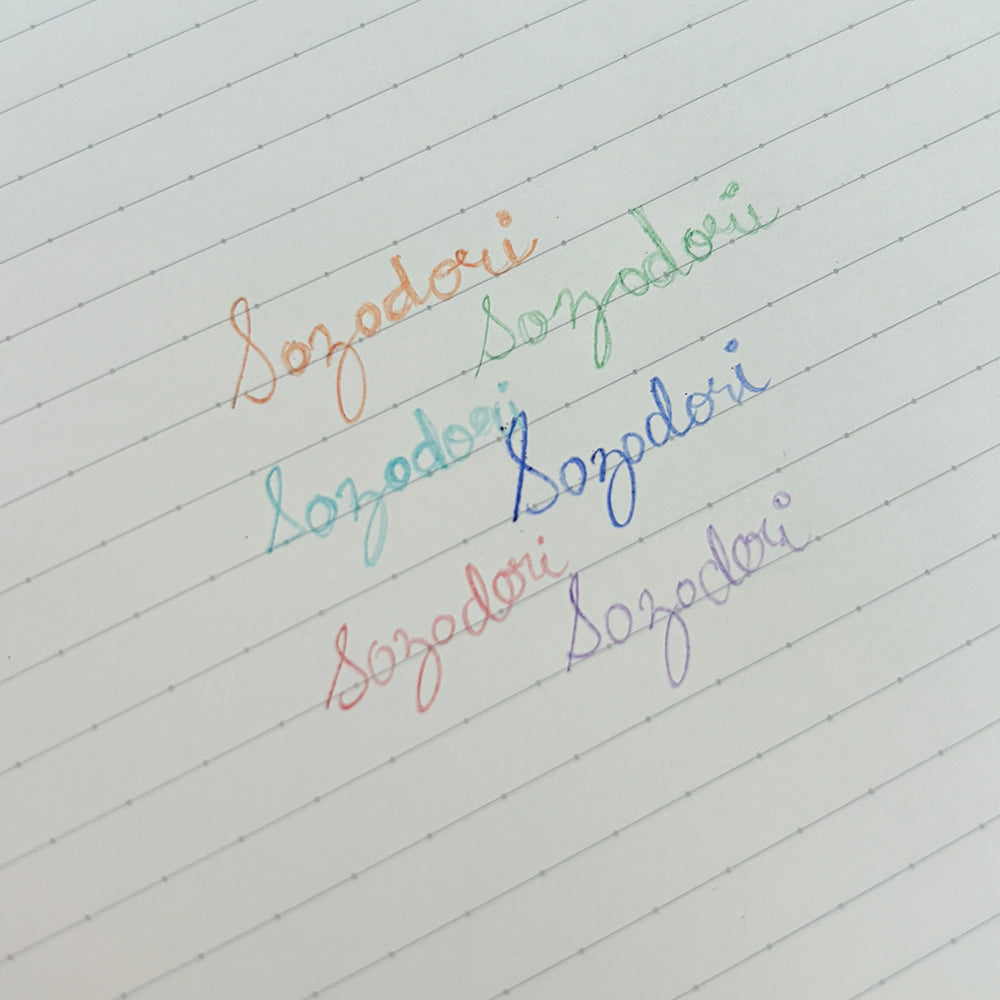 Sozodori Sozodori
Sozodori Sozodori
Sozodori Sozodori